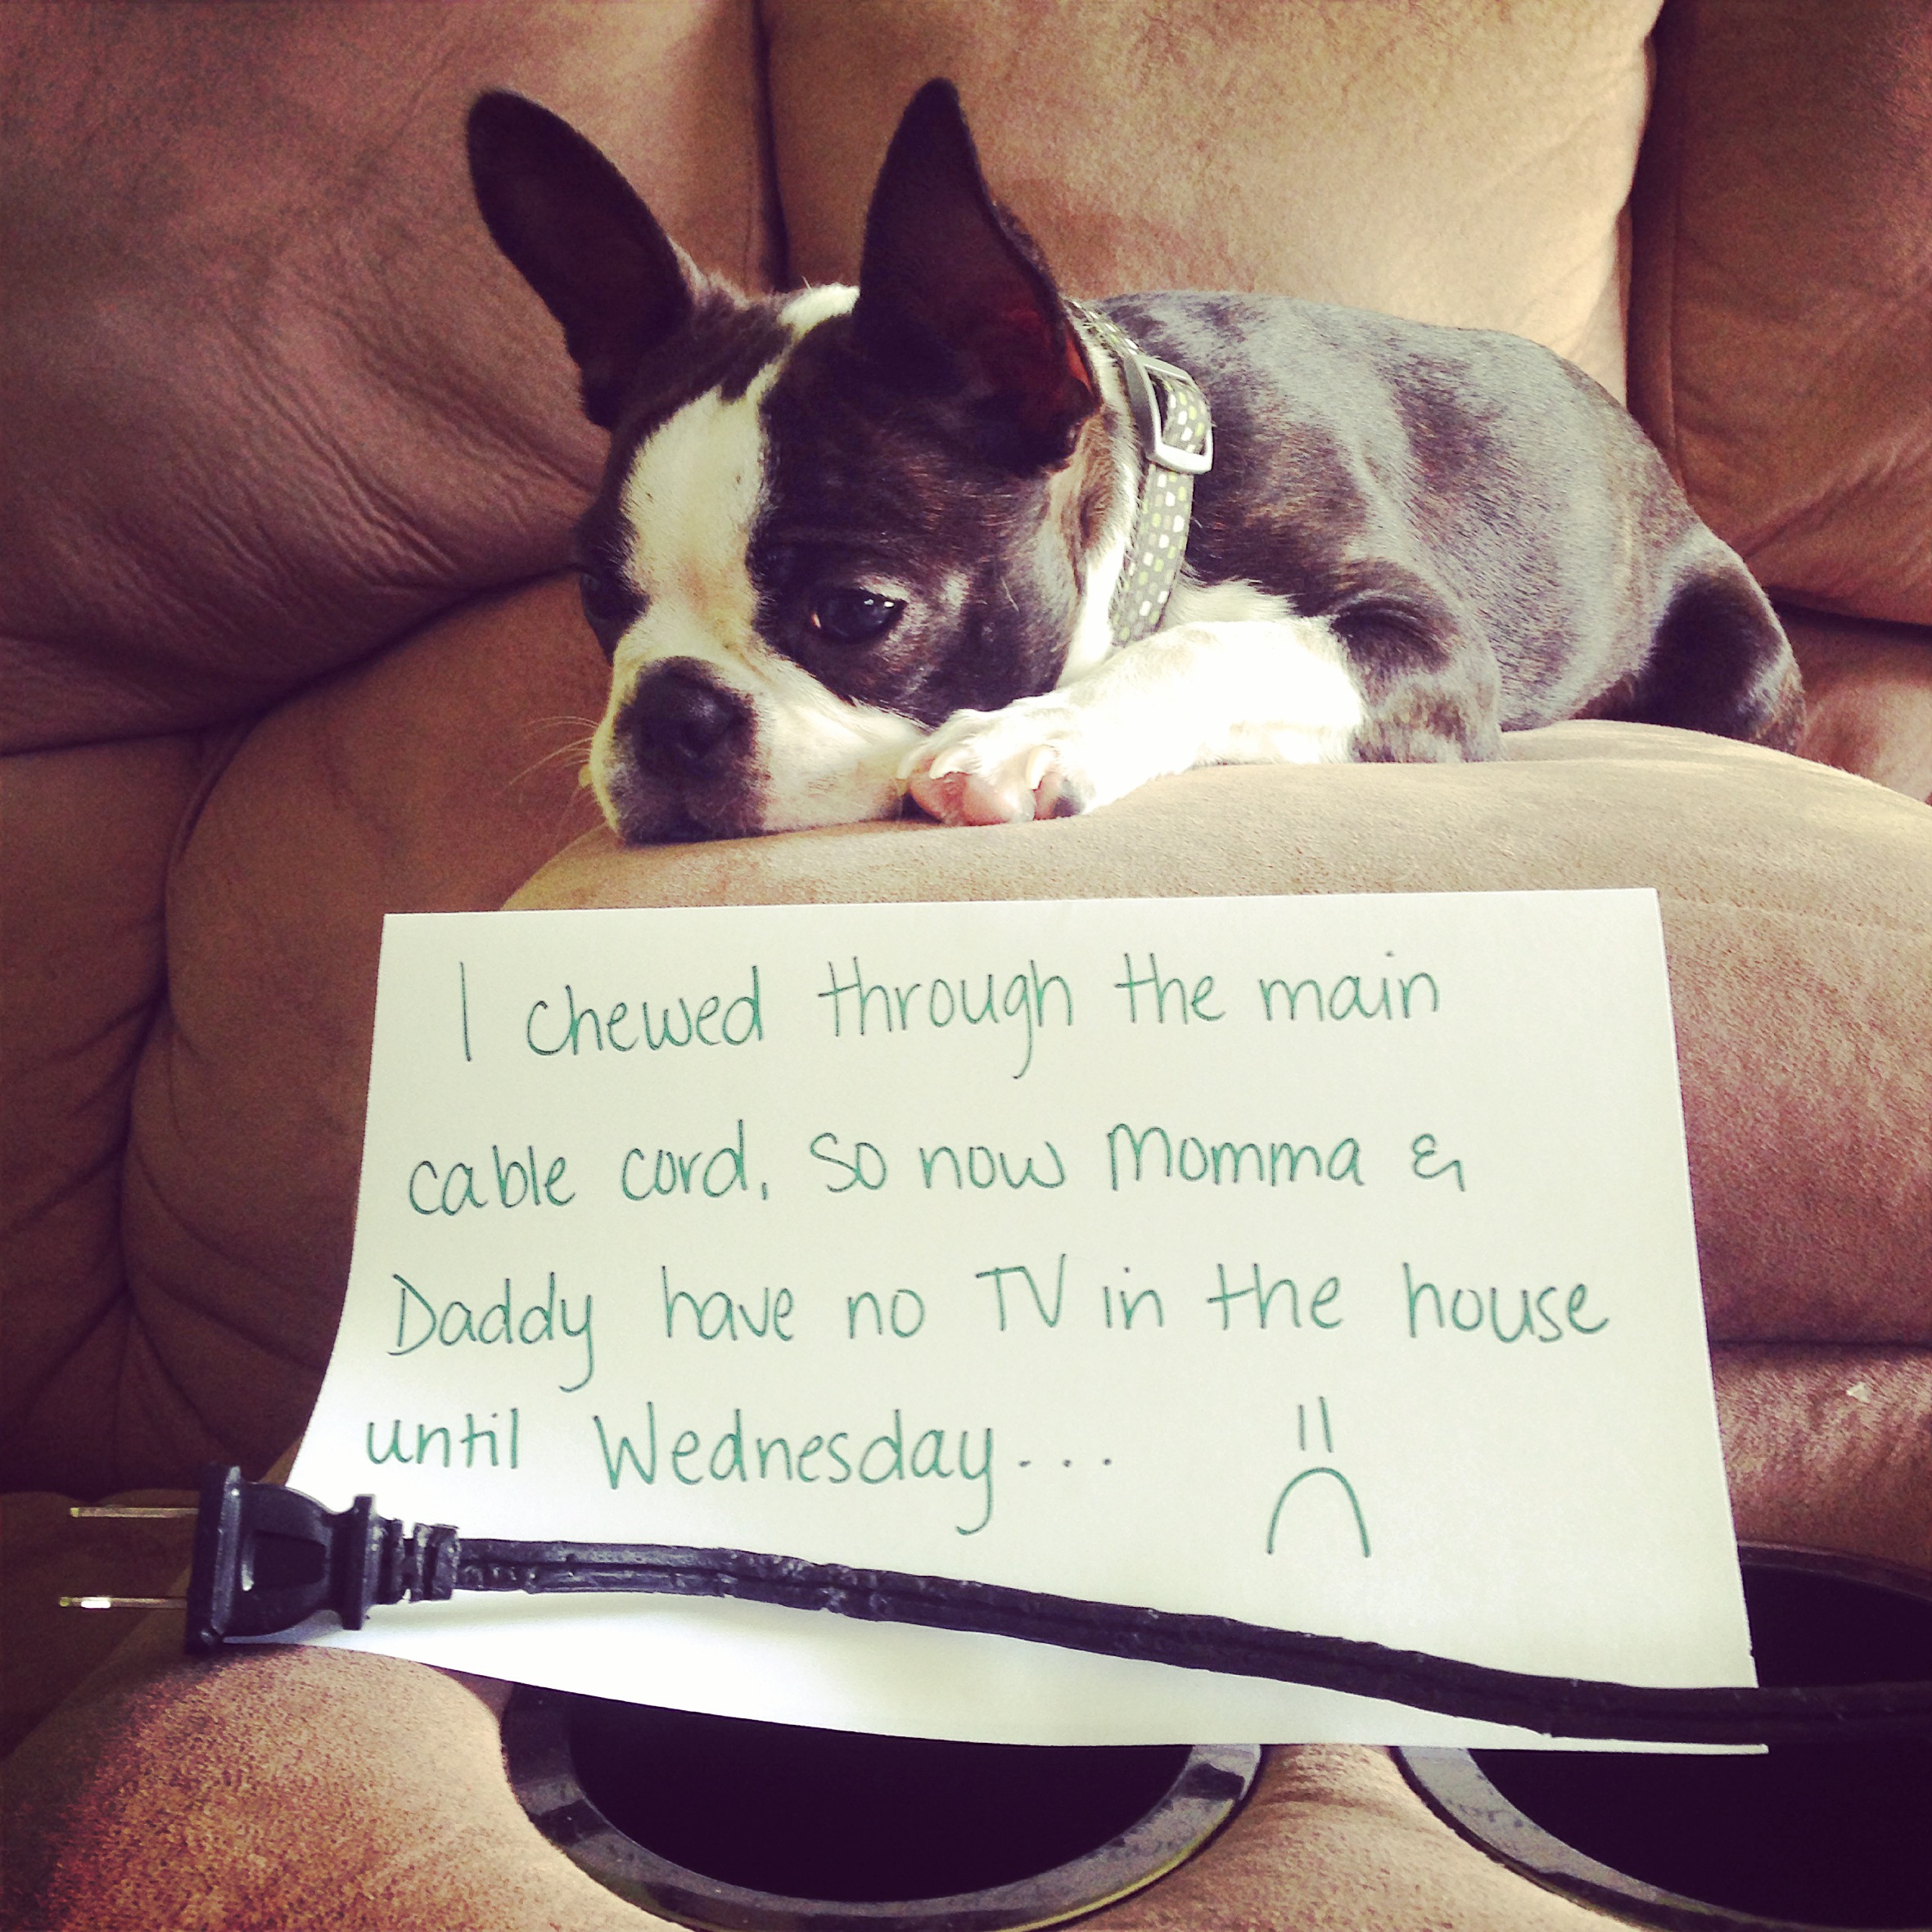 I chewed through the main
cable cord, so now Momma &
Daddy have no TV in the house
until Wednesday... =(